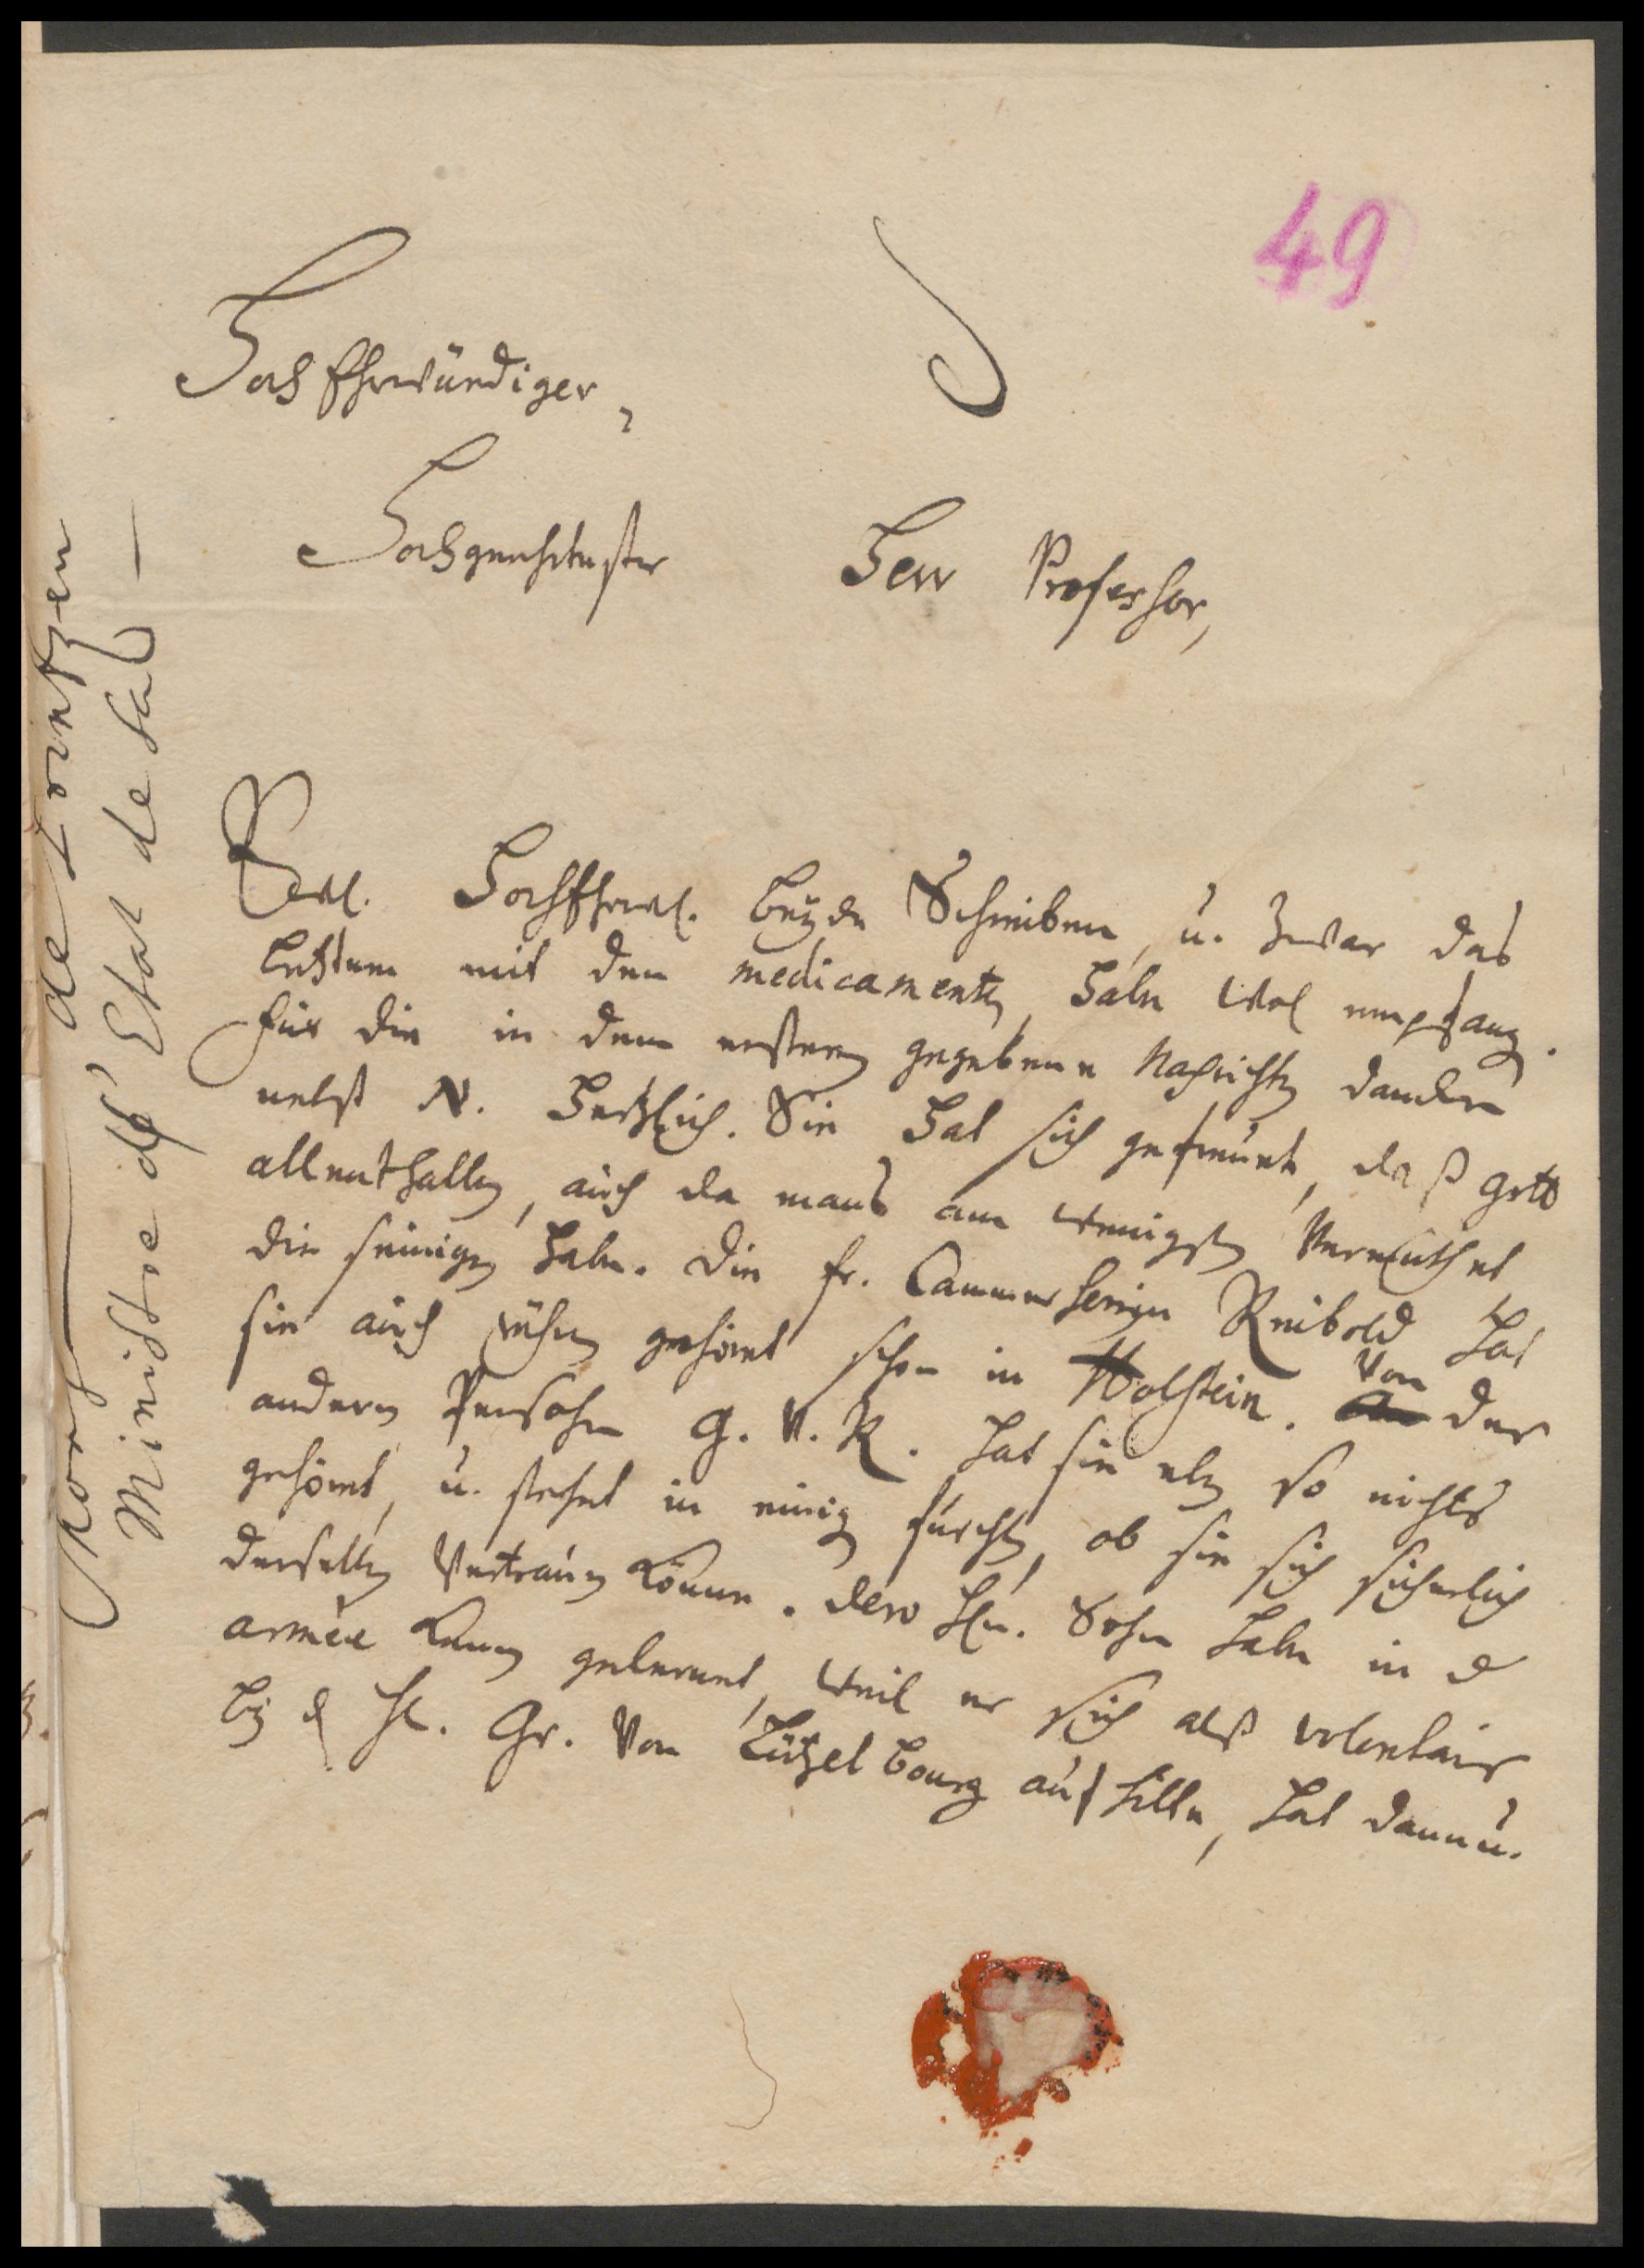 49
HochEhrwürdiger,
Hochgeehrtester Herr Professor,
Ewl. HochEhrwl. beyde Schreiben, u. zwar das
letztere mit den medicamenten, habe wol empfang.
für die in dem erstern gegebene Nachrichten dancke
nebst N. hertzlich. Sie hat sich gefreuet, daß Gott
allenthalben, auch da mans am wenigsten vermuthet
die seinigen habe. Die fr. Cammerherrin Reibold hat
sie auch rühmen gehöret schon in Holstein. Von der
andern Persohn G. V. R. hat sie eben so nichts
gehöret, u. stehet in einig furcht, ob sie sich sicherlich
derselben vertrauen könne. Dero Hn. Sohn habe in d
armée kennen gelernet, weil er sich alß volontair
bey d H. Gr. von Lützelbourg aufhielte, hat dann u.
de Lorentzen
Ministre d' Etat de Sa